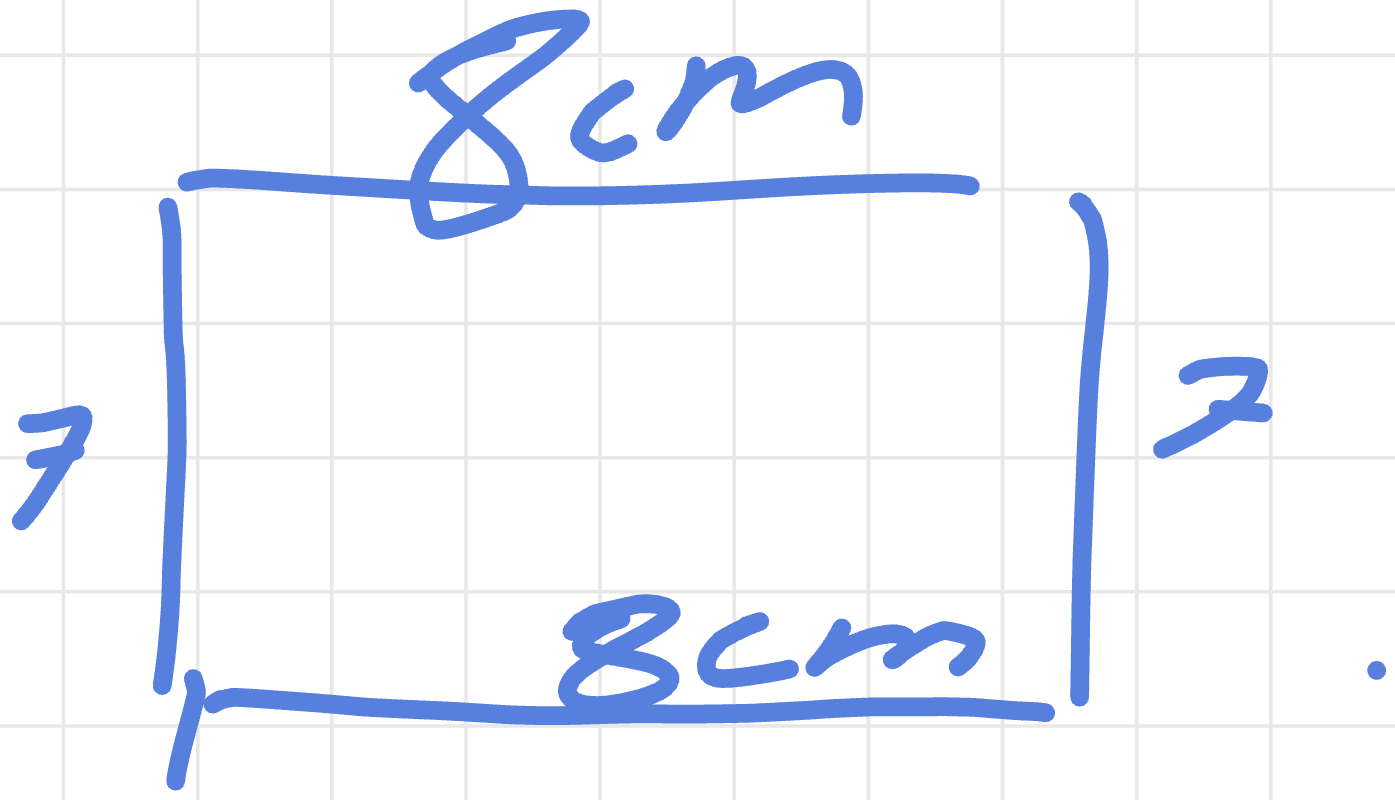 8cm
7
7
8cm